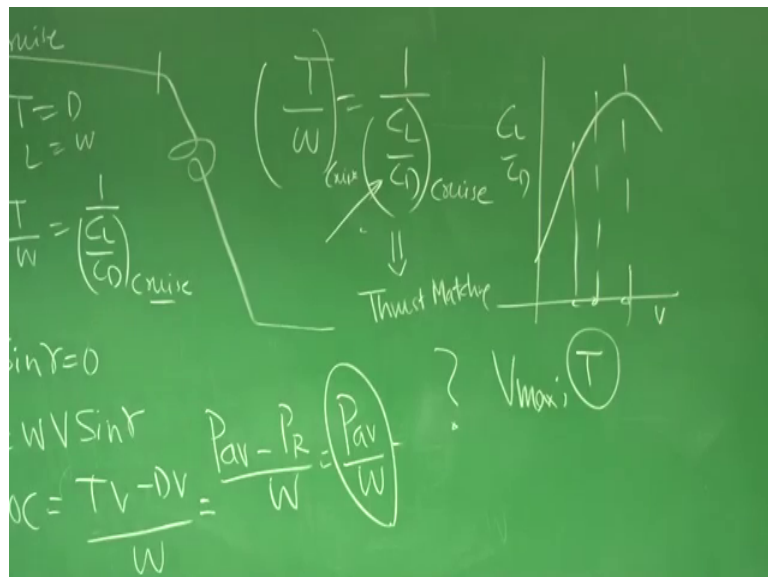 T = D
L = W
T/W = 1/(CL/CD) Cruise
(T/W) Cruise = 1/(CL/CD) Cruise
⇓
Thrust Matching
CL/CD
V
Sinγ = 0
= WV Sinγ
OC = TV - DV/W = Pav - PR/W = Pav/W -
? Vmax; T